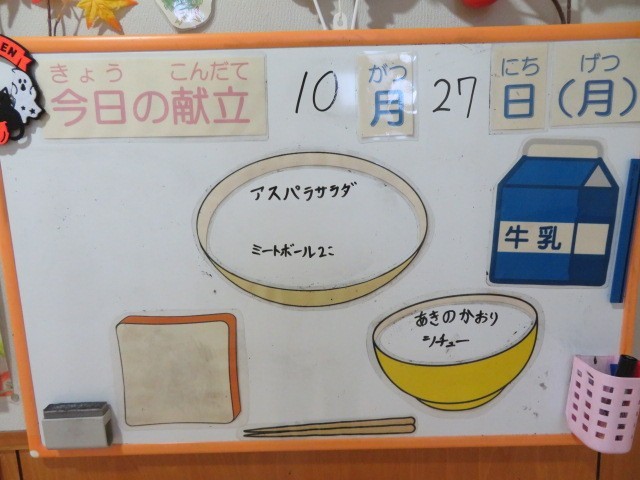 EN
きょう こんだて
今日の献立 10 月 27 日 (月)
がつ にち げつ
アスパラサラダ
ミートボール2こ
牛乳
あきのかおり
シチュー